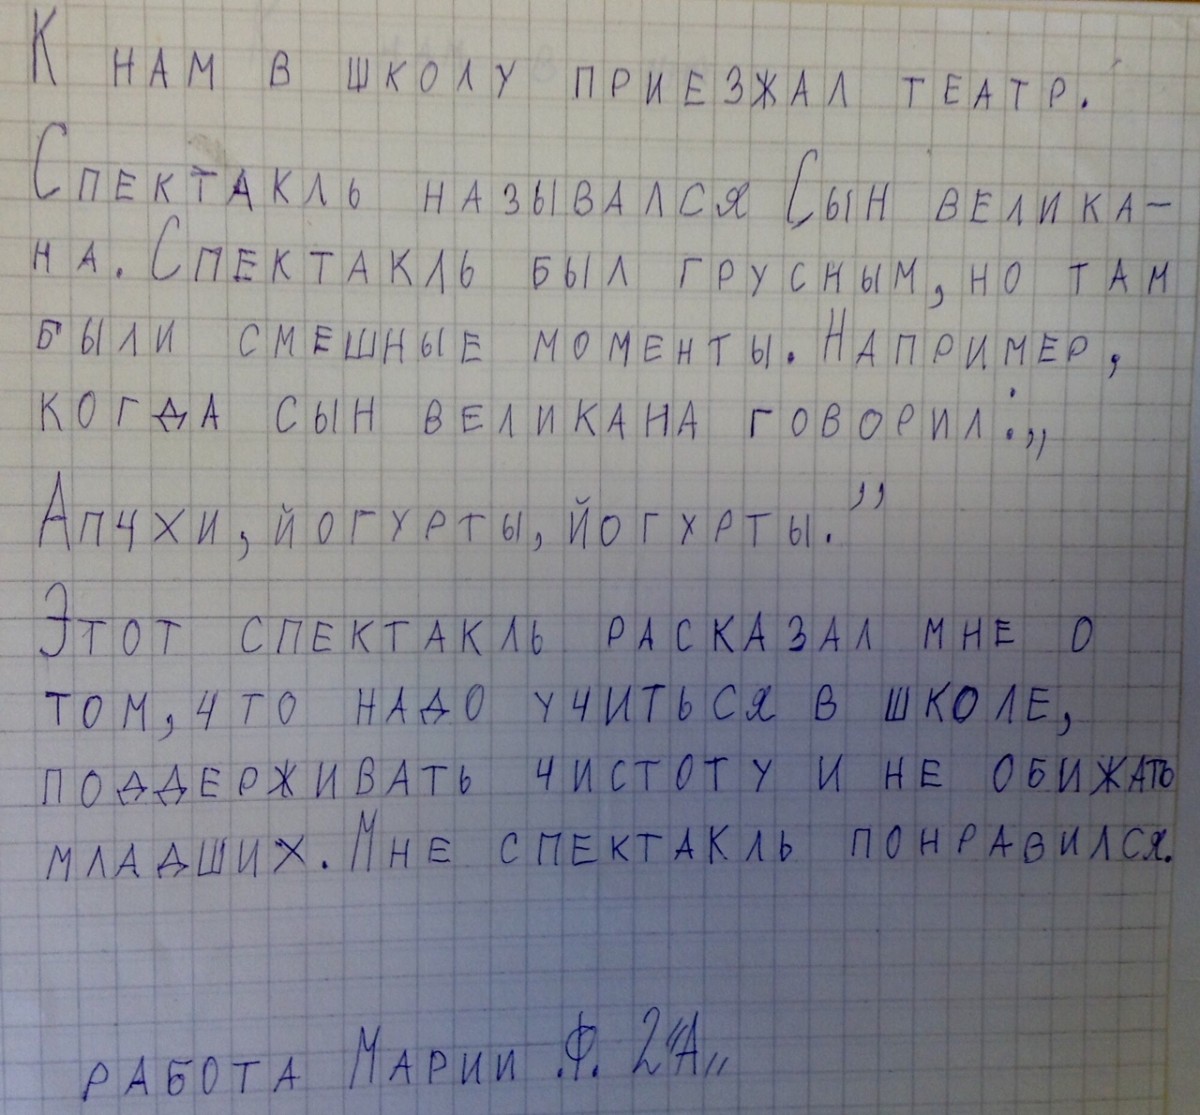 К нам в школу приезжал театр.
Спектакль назывался Сын велика-
на. Спектакль был грусным, но там
были смешные моменты. Например,
когда сын великана говорил: „
Апчхи, йогурты, йогурты.”
Этот спектакль расказал мне о
том, что надо учиться в школе,
поддерживать чистоту и не обижать
младших. Мне спектакль понравился.
работа Марии Ф. 2“А„